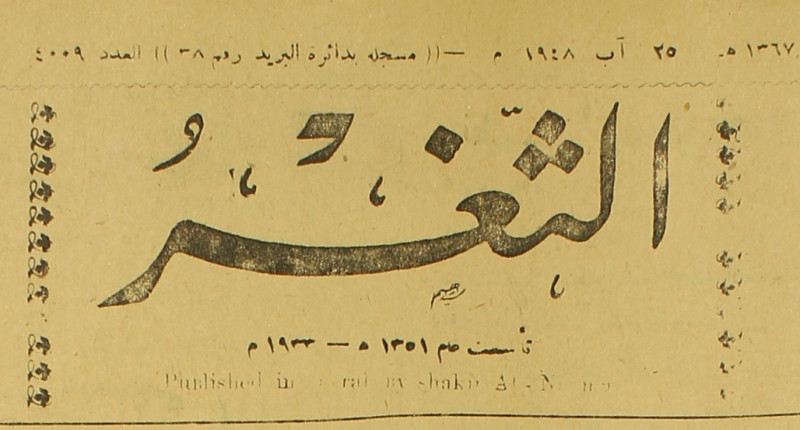 ١٣٦٧ ه. ٢٥ آب ١٩٤٨ م —(( مسجله بدائرة البريد رقم ٣٨ )) العدد ٤٠٠٩
الثغر
تأسست عام ١٣٥١ ه — ١٩٣٣ م
Published in by shakir Al-